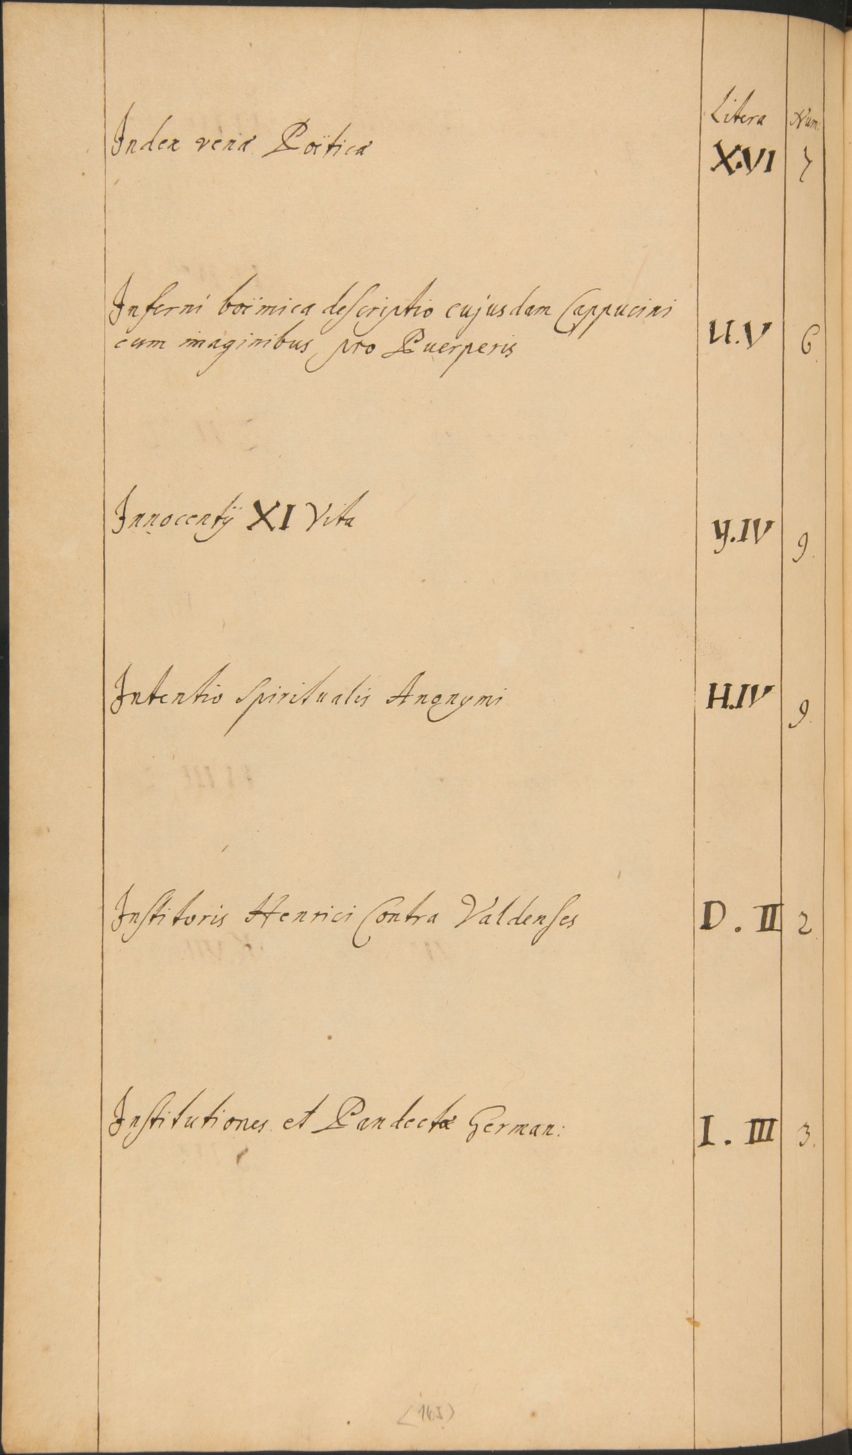 Litera Num.
Index venæ Poëticæ X.VI 7
Inferni boëmica descriptio cujusdam Cappucini
cum imaginibus pro Puerperis U.V 6
Innocentij XI Vita Y.IV 9.
Intentio Spiritualis Anonymi H.IV 9.
Institoris Henrici Contra Valdenses D. II 2
Institutiones et Pandectæ German: I. III 3.